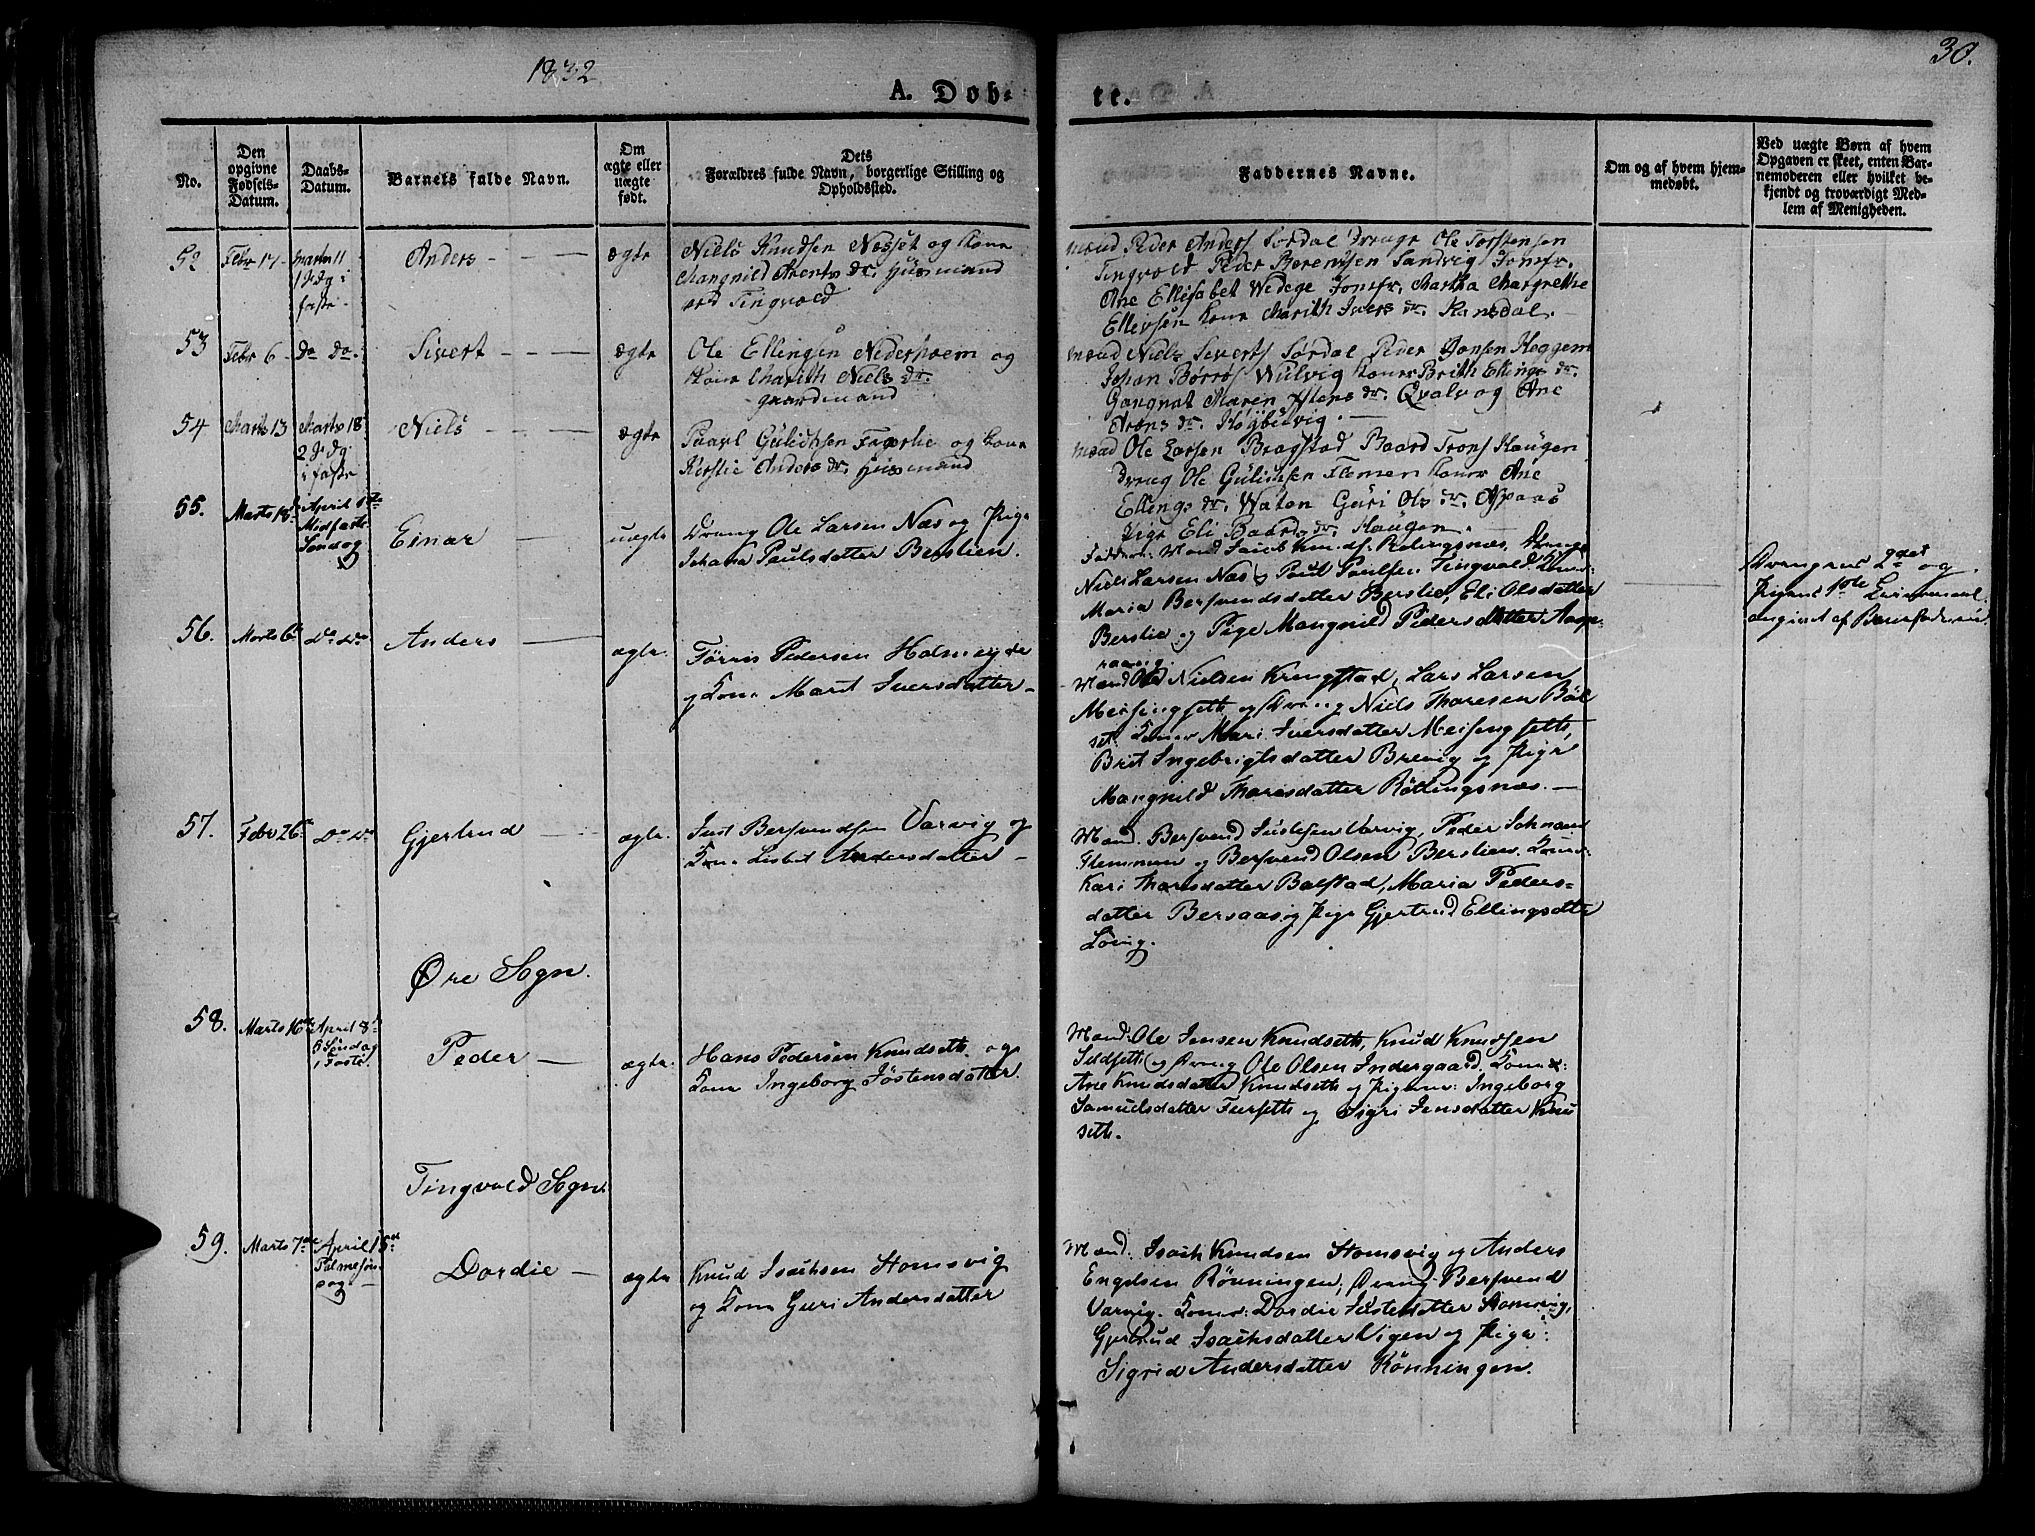 1832
30.
A. Døb-
te.
No.
Den opgivne Fødsels-Datum.
Daabs-Datum.
Barnets fulde Navn.
Om ægte eller uægte født.
Dets Forældres fulde Navn, borgerlige Stilling og Opholdssted.
Faddernes Navne.
Om og af hvem hjem-medøbt.
Ved uægte Børn af hvem Opgaven er skeet, enten Bar-nemoderen eller hvilket be-kjendt og troværdigt Med-lem af Menigheden.
52
Febr 17
Marts 11
1 S Dg i
faste
Anders
ægte
Niels Knudsen Næsset og Kone
Mangnild Arents dr. Huusmand
ved Tingvold
Mænd Peder Anders Sørdal Drenge Ole Torstensen
Tingvold Peder Berentsen Sandvig Jomfr.
Ane Ellisabet Wedege Jomfr. Martha Margrethe
Ellevsen Kone Marith Ivers dr. Ramsdal.
53
Febr 6
Do Do.
Sivert
ægte
Ole Ellingsen Nederhoem og
Kone Marith Niels dr.
gaardmand
Mænd Niels Siverts Sørdal Peder Jonsen Hoggem
Johan Børres Wulvig Koner Brith Ellings dr.
Gangnat Maren Istens dr. Qvalv og Ane
Arens dr. Høybuvig.
54
Marts 13
Marts 18
2 S Dg
i faste
Niels
ægte
Paavl Gulichsen og Kone
Kirstie Anders dr. Huusmand
Mænd Ole Larsen Bragstad Baard Trons Haugen
dreng Ole Gulichsen Flemen Koner Ane
Ellings dr. Waten Guri Ols dr. Aspaas
Pige Eli Baards dr. Haugen.
55.
Marts 18
April 1ste
Midfaste
Søndag
Einar
uægte
Dreng Ole Larsen Næs og Pige
Johana Paulsdatter Berslien.
Faddere: Mænd Jacob Knudsen Rølingsnæs, Dreng
Niels Larsen Næs og Poul Poulsen Tingvold
Maria Bersvendsdatter Berslie, Eli Olsdatter
Berslie og Pige Mangnild Pedersdatter Aasp-
raang.
Drengens 2det og
Pigens 1ste Leiermaal
angivet af Barnefaderen
56.
Marts 6te
Do Do
Anders
ægte.
Tørris Pedersen Holmeyde
og Kone Marit Iversdatter
Mænd Ole Nielsen Kringstad, Lars Larsen
Meisingseth og Dreng Niels Tharesen Bøl
set. Koner Mari Iversdatter Meisingseth,
Brit Ingebrigtsdatter Brevig og Pige
Mangnild Tharesdatter Røtlingsnæs.
57.
Febr 26
Do Do
Gjertrud
ægte.
Just Bersvendsen Varvig og
Kone Lisbet Andersdatter
Mænd. Bersvend Justesen Varvig, Peder Johnsen
Flemmen og Bersvend Olsen Berslien. Kone:
Kari Tharesdatter Bolstad, Maria Peders-
datter Bersaas og Pige Gjertrud Ellingsdatter
Løvig.
Øre Sogn.
58.
Marts 16de
April 8de
5 Søndag
i Faste.
Peder
ægte.
Hans Pedersen Knudseth og
Kone Ingeborg Jøstensdatter.
Mænd: Ole Jensen Knudseth, Knud Knudsen
Sildseth og Dreng Ole Olsen Indergaard. Kone:
Ane Knudsdatter Knudseth og Pigerne: Ingeborg
Samuelsdatter Furseth og Sigri Jensdatter Knu
seth.
Tingvold Sogn.
59.
Marts 7de
April 15de
Palmesøn
dag
Dordie
ægte
Knud Isachsen Stomsvig
og Kone Guri Andersdatter
Mænd: Isach Knudsen Stomsvig og Anders
Engelsen Rønningen; Dreng Bersvend
Varvig. Koner: Dordie Jøstensdatter Stomsvig,
Gjertrud Isachsdatter Vigen og Pige:
Sigrid Andersdatter Rønningen.